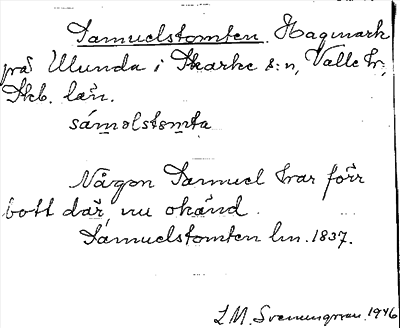 Samuelstomten. Hagmark
på Ulunda i Skarke s:n, Valle hr;
Skb. län.
såmolstomta
Någon Samuel har förr
bott där, nu okänd.
Samuelstomten lm. 1837.
L.M. Svenungsson 1946